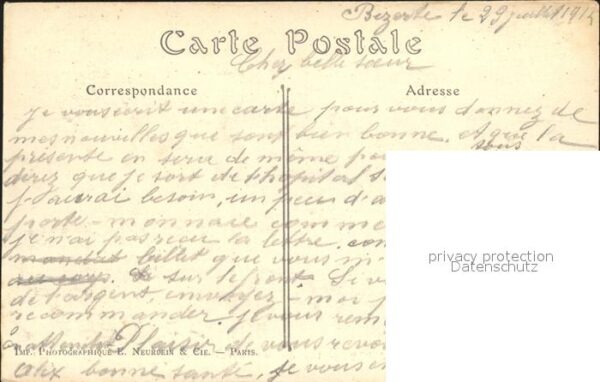 Bizerte le 29 juillet 1915
Carte Postale
Chez belle sœur
Correspondance
Adresse
je vous ecrit une carte pour vous donnez de
mes nouvelles que sont bien bonne et que la
présente en sera de même pour vous
direz que je sort de l'hopital
j'aurai besoin, un peu d'a
porte-monnaie comme
je n'ai pas reçu ta lettre. com
mandat billet que vous m
Le sur le front. Si v
de l'argent, envoyez-moi
recommander. je vous rem
attends Plaisir de vous revo
IMP. PHOTOGRAPHIQUE E. NEURDEIN & CIE. — PARIS.
bonne santé, je vous
privacy protection
Datenschutz